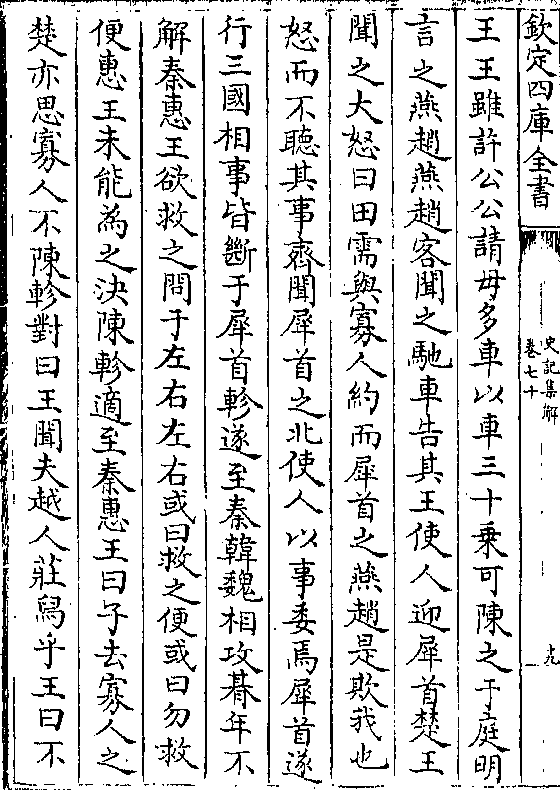 欽定四庫全書
史記集解
卷七十
十九
王王雖許公公請毋多車以車三十乗可陳之于庭明
言之燕趙燕趙客聞之馳車告其王使人迎犀首楚王
聞之大怒曰田需與寡人約而犀首之燕趙是欺我也
怒而不聽其事齊聞犀首之北使人以事委焉犀首遂
行三國相事皆斷于犀首軫遂至秦韓魏相攻朞年不
解秦惠王欲救之問于左右左右或曰救之便或曰勿救
便惠王未能為之決陳軫適至秦惠王曰子去寡人之
楚亦思寡人不陳軫對曰王聞夫越人莊舄乎王曰不